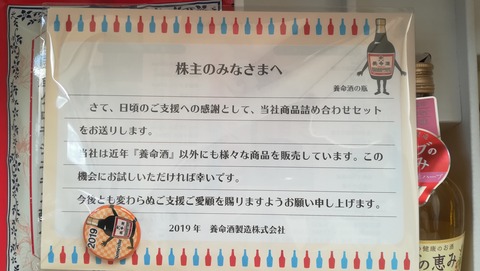 株主のみなさまへ
養命酒
養命酒の瓶
さて、日頃のご支援への感謝として、当社商品詰め合わせセット
をお送りします。
当社は近年『養命酒』以外にも様々な商品を販売しています。この
機会にお試しいただければ幸いです。
今後とも変わらぬご支援ご愛顧を賜りますようお願い申し上げます。
2019年 養命酒製造株式会社
2019
ブの
み
健康のお酒
の恵み